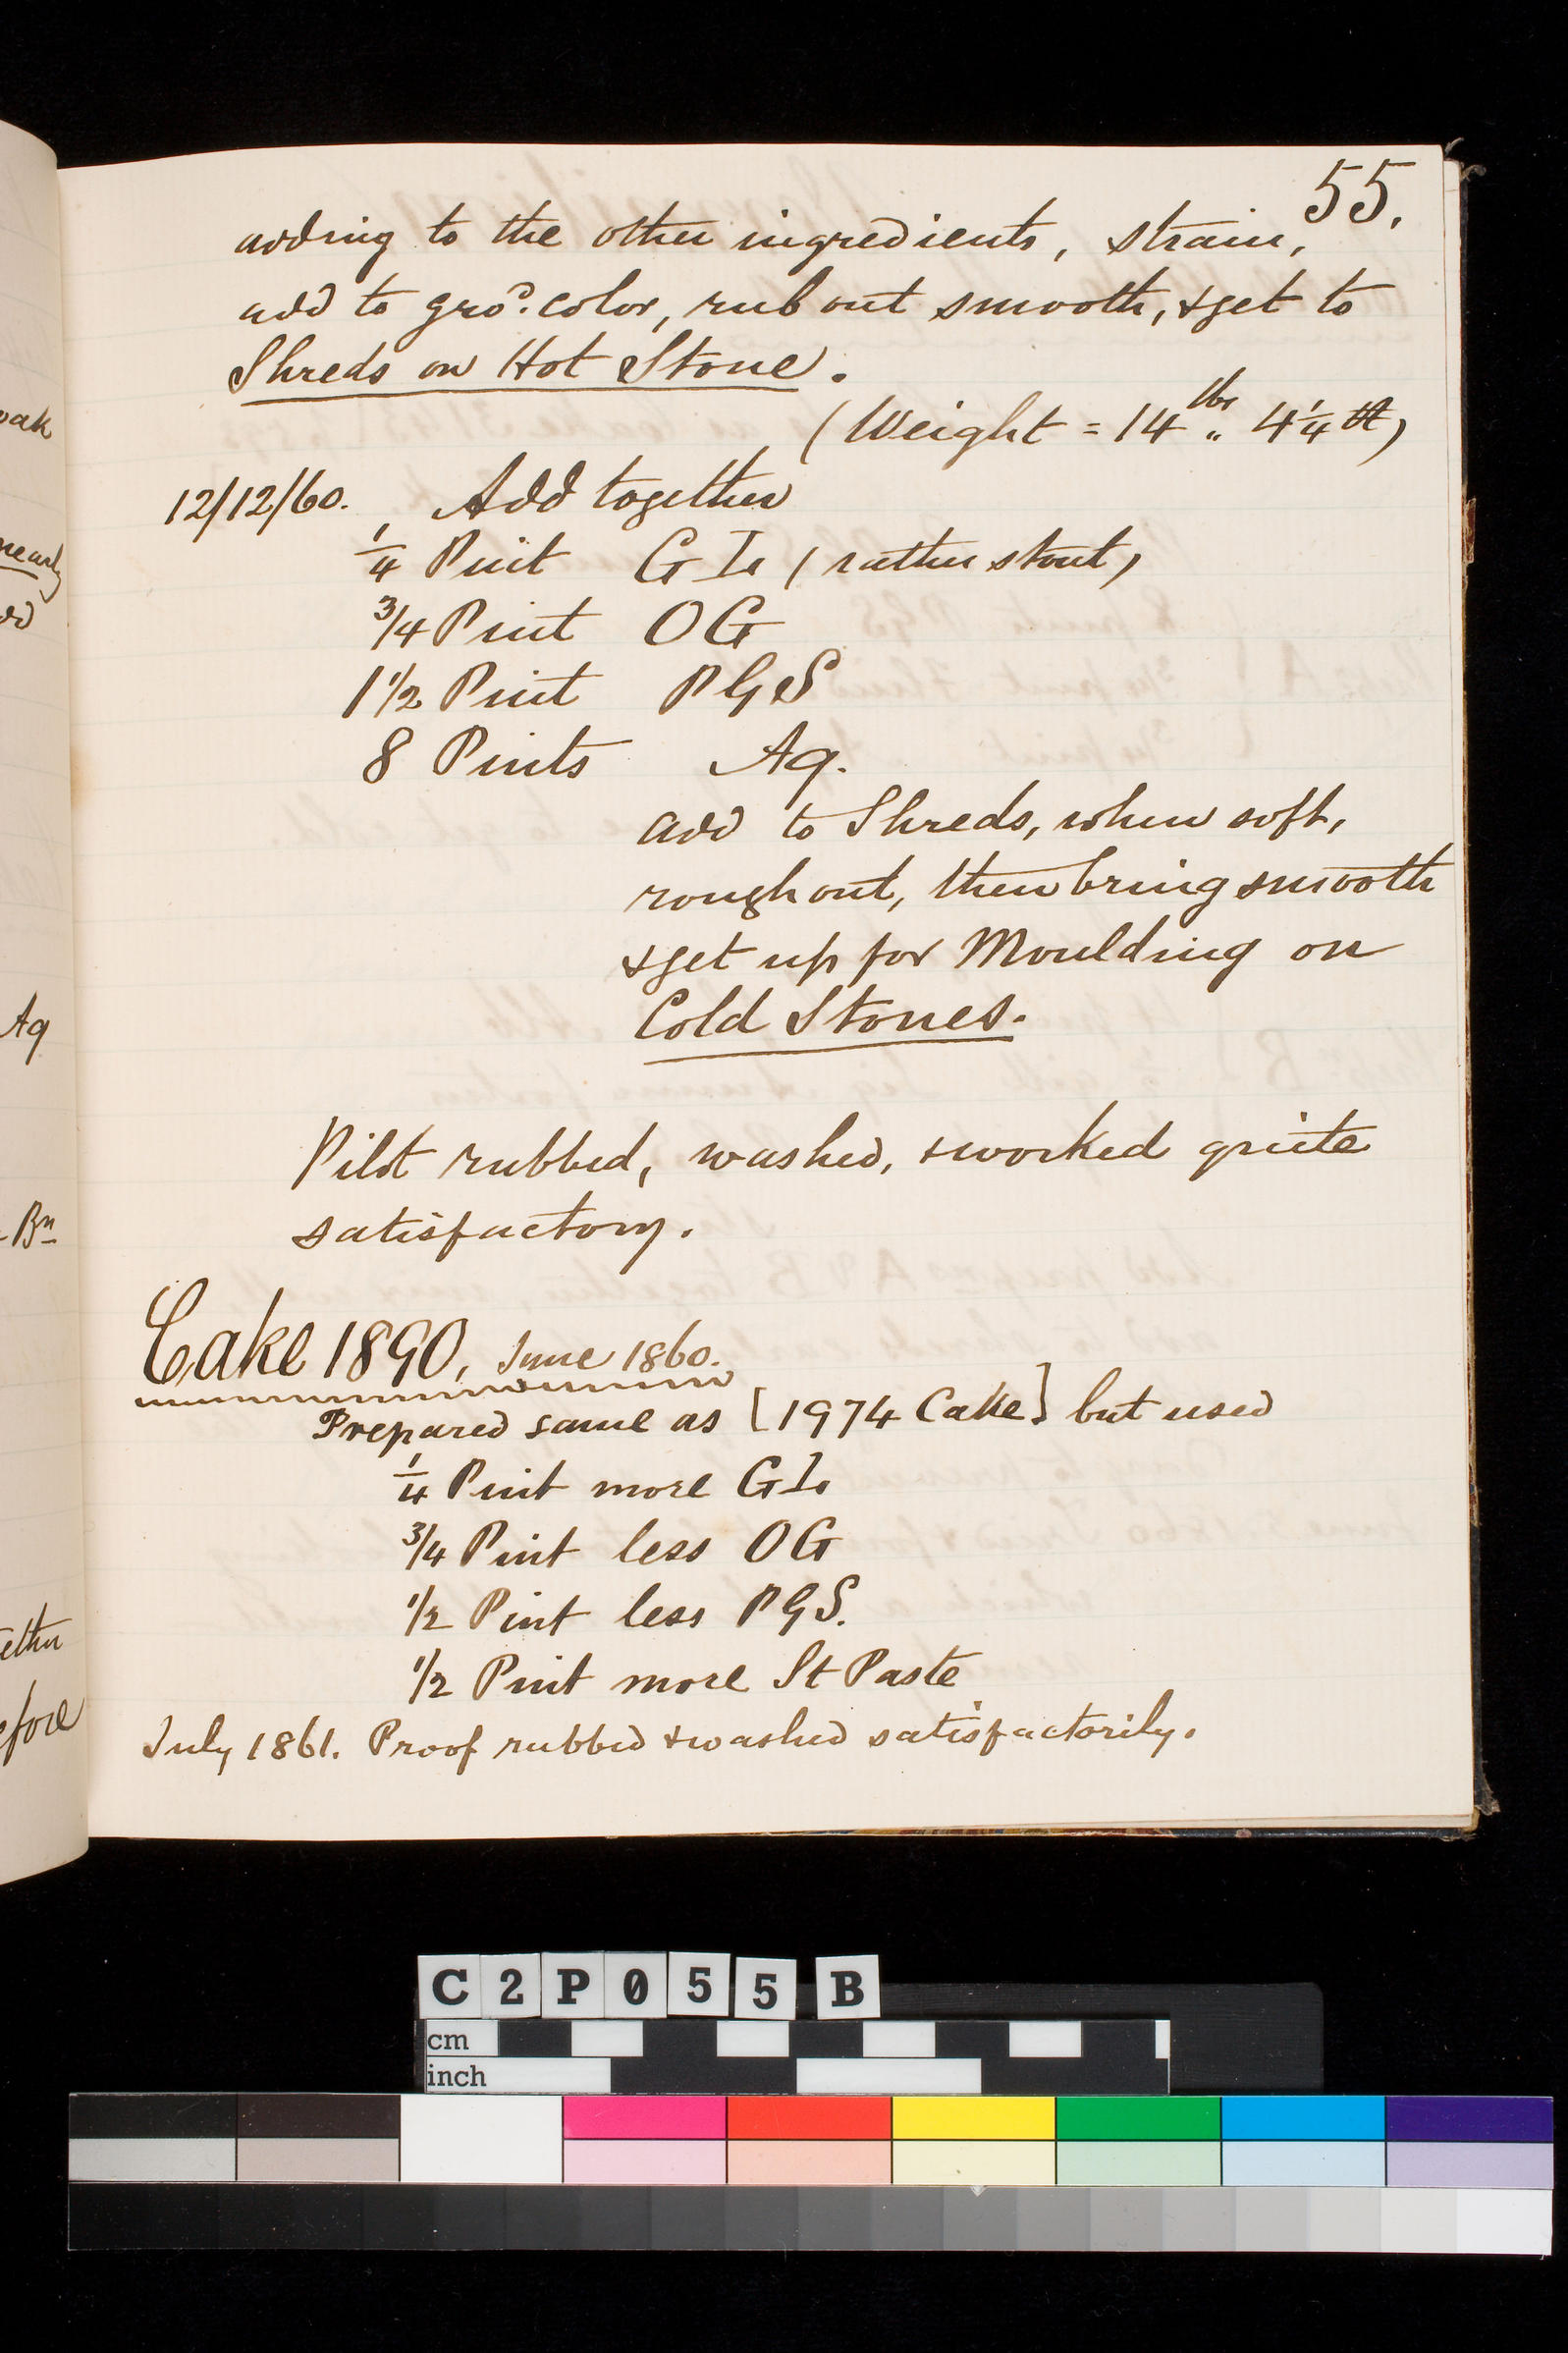 55.
adding to the other ingredients, strain,
add to gro.d color, rub out smooth, & get to
Shreds on Hot Stone.
(Weight = 14 lbs " 4¼ lb)
12/12/60. Add together
¼ Pint G I (rather stout)
3/4 Pint OG
1 1/2 Pint PGS
8 Pints Aq.
add to Shreds, when soft,
rough out, then bring smooth
& get up for Moulding on
Cold Stones.
Pilot rubbed, washed, & worked quite
satisfactory.
Cake 1890, June 1860.
Prepared same as [1974 Cake] but used
¼ Pint more G I
3/4 Pint less OG
1/2 Pint less PGS.
1/2 Pint more St Paste
July 1861. Proof rubbed & washed satisfactorily.
oak
nearly
Aq
Bn
ether
efore
C2P055 B
cm
inch